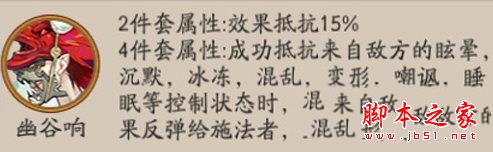 2件套属性:效果抵抗15%
4件套属性:成功抵抗来自敌方的眩晕,
沉默,冰冻,混乱,变形.嘲讽,睡
眠等控制状态时,混 来自
果反弹给施法者,.混乱
幽谷响
脚本之家
www.jb51.net